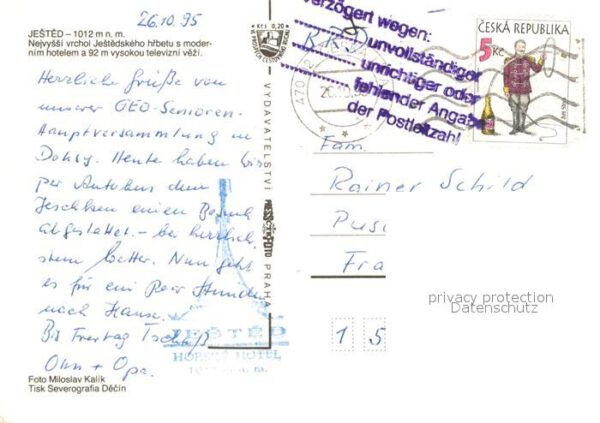 26.10.95
JEŠTĚD – 1012 m n. m.
Nejvyšší vrchol Ještědského hřbetu s moder-
ním hotelem a 92 m vysokou televizní věží.
Herzliche Grüße von
unserer GEO-Senioren-
Hauptversammlung in
Doksy. Heute haben wir
per Autobus dem
Jeschken einen Besuch
abgestattet – bei herrlich
stem Wetter. Nun geht
es für ein Paar Stunden
nach Hause.
Bis Freitag Tschüß
Oma + Opa.
Foto Miloslav Kalík
Tisk Severografia Děčín
Kčs 0,20
VYDAVATELSTVÍ
PRAHA
JEŠTĚD
HORSKÝ HOTEL
verzögert wegen:
unvollständiger
unrichtiger oder
fehlender Angabe
der Postleitzahl
BRD
ČESKÁ REPUBLIKA
5 Kč
Fam.
Rainer Schild
Pusc
Fra
privacy protection
Datenschutz
1 5